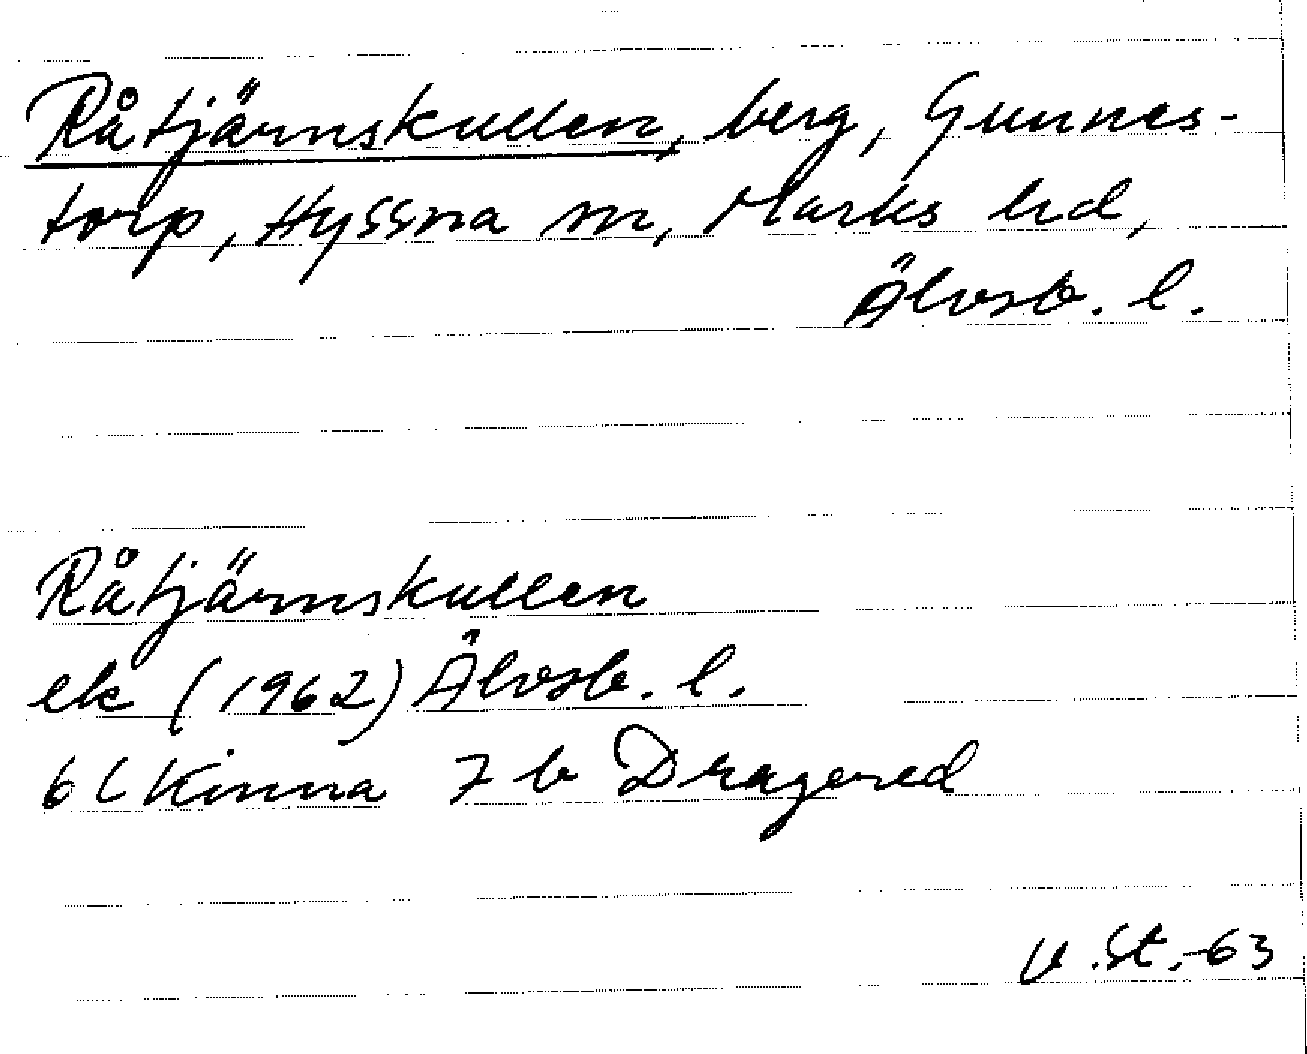 Råtjärnskullen, berg, Gunnes-
torp, Hyssna sn, Marks hd,
Älvsb. l.
Råtjärnskullen
ek (1962) Älvsb. l.
6C Kinna 7 b Dragered
V. St. -63